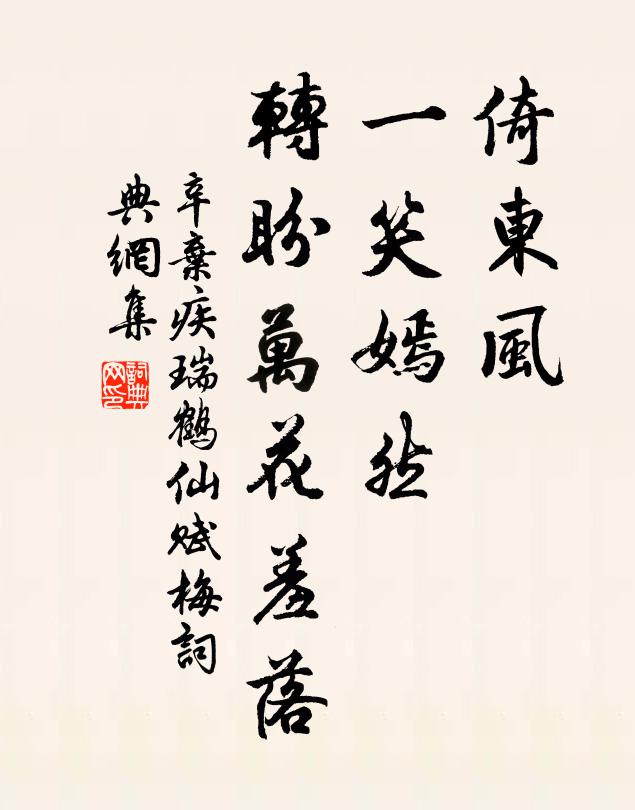 倚東風
一笑嫣然
轉盼萬花羞落
辛棄疾瑞鶴仙賦梅詞
典網集
詞典网印